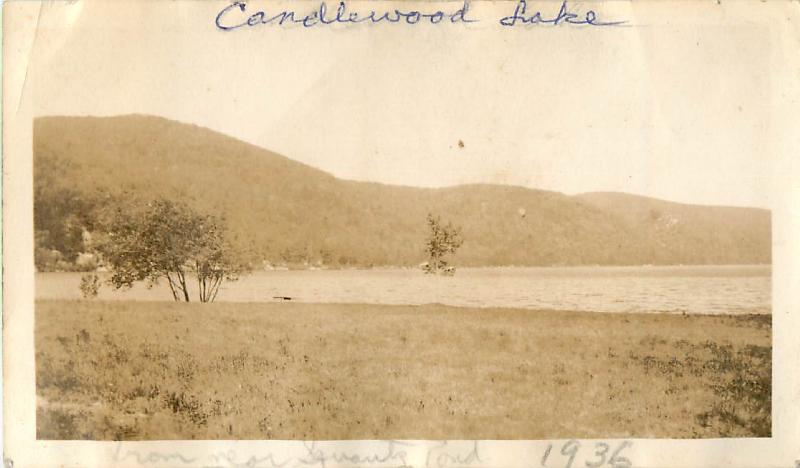 Candlewood Lake
from near Squantz Pond 1936